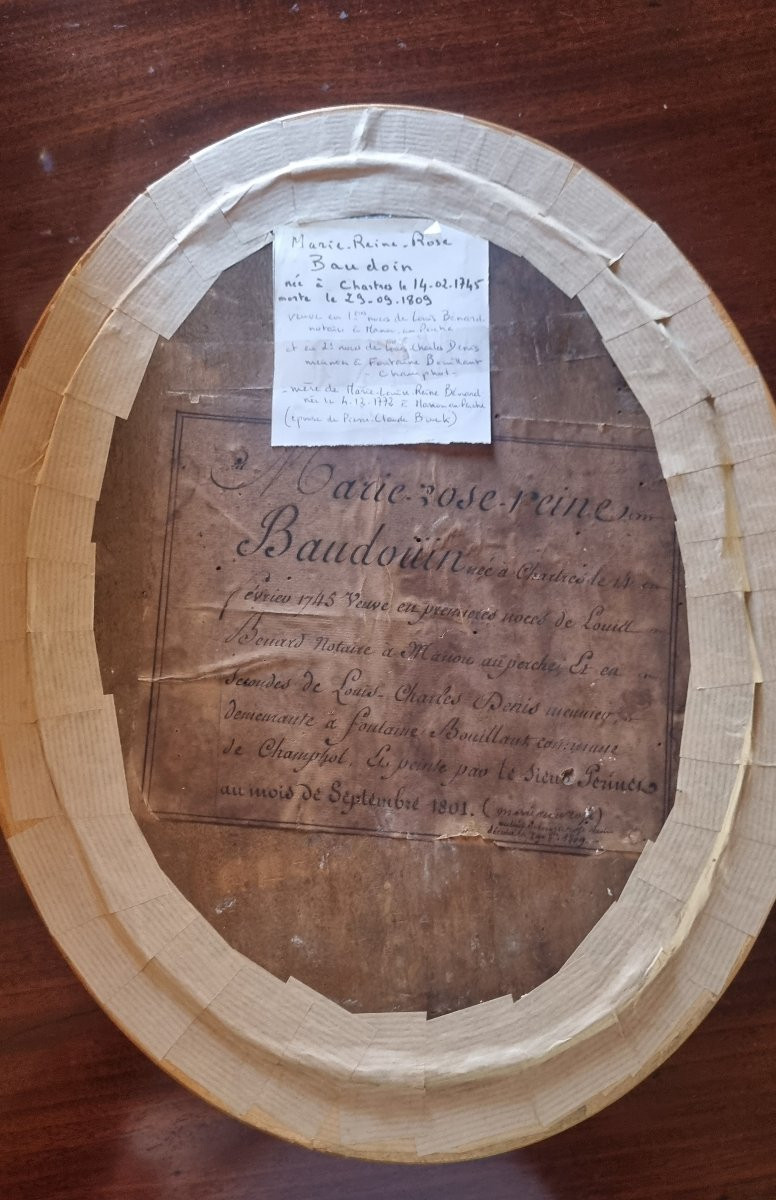 Marie-Reine-Rose
Baudoin
née à Chartres le 14-02-1745
morte le 29-09-1809
veuve en 1ères noces de Louis Bénard
notaire à Manou-au-Perche
et en 2è noces de Louis Charles Denis
meunier à Fontaine Bouillant
- Champhol -
- mère de Marie-Louise Reine Bénard
née le 4.12.1772 à Manou-au-Perche
(épouse de Pierre-Claude
Marie-rose-reine
Baudouin née à Chartres le 14
février 1745 Veuve en premieres noces de Louis
Benard Notaire a Manou au perche, Et en
secondes de Louis-Charles Denis meunier,
demeurante à fontaine Bouillant commune
de Champhol. Es peinte par le sieur
au mois de Septembre 1801.
1809